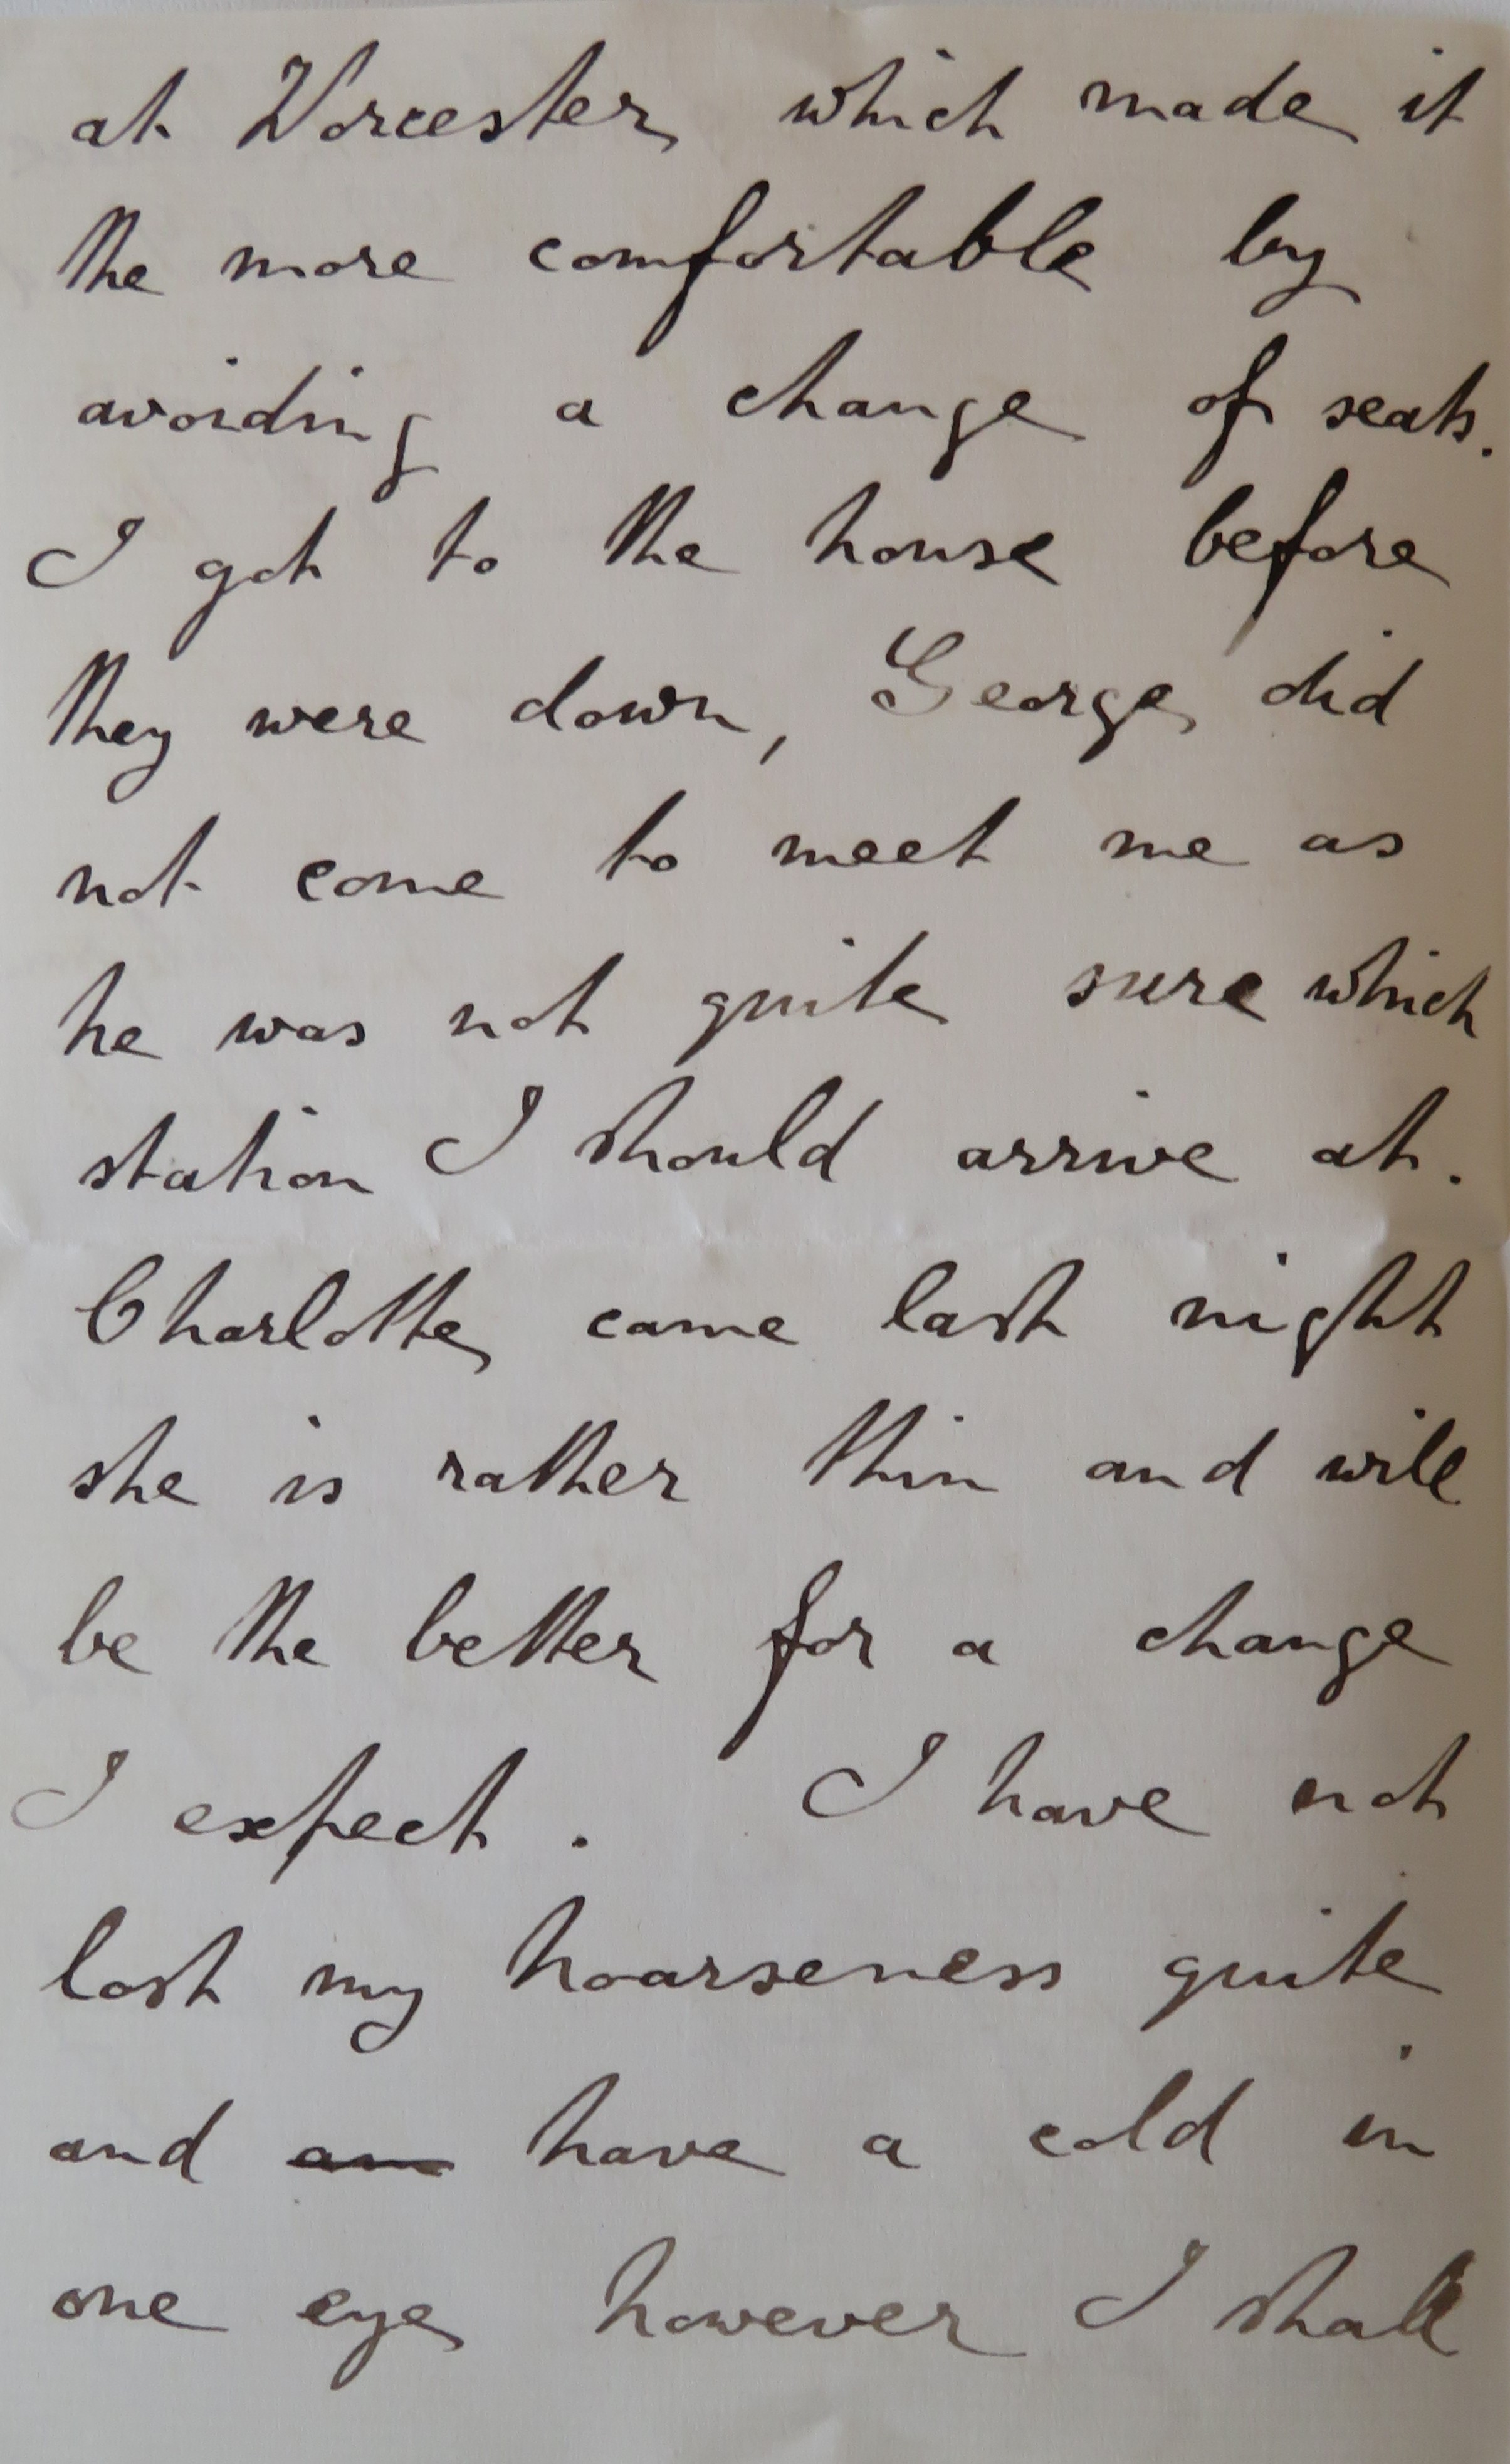 at Worcester which made it
the more comfortable by
avoiding a change of seats.
I got to the house before
they were down, George did
not come to meet me as
he was not quite sure which
station I should arrive at.
Charlotte came last night
she is rather thin and will
be the better for a change
I expect. I have not
lost my hoarseness quite
and am have a cold in
one eye however I shall